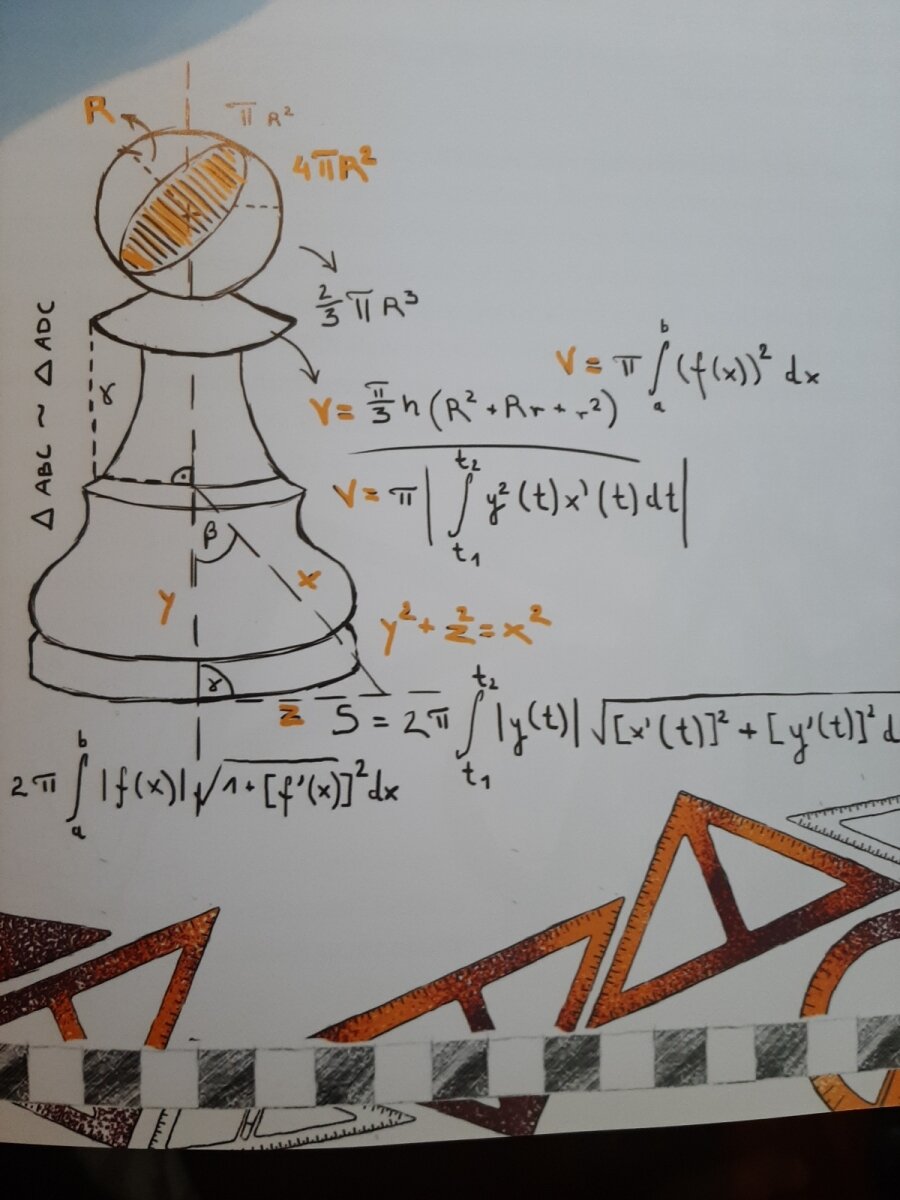 R
π R²
4πR²
2/3 π R³
△ ABC ~ △ ADC
γ
V = π ∫ₐᵇ (f(x))² dx
V = π/3 h (R² + Rr + r²)
V = π | ∫ₜ₁ᵗ² y² (t) x' (t) dt |
β
x
y
y² + z² = x²
γ
z
S = 2π ∫ₜ₁ᵗ² |y(t)| √[x'(t)]² + [y'(t)]² d
2π ∫ₐᵇ |f(x)| √1 + [f'(x)]² dx